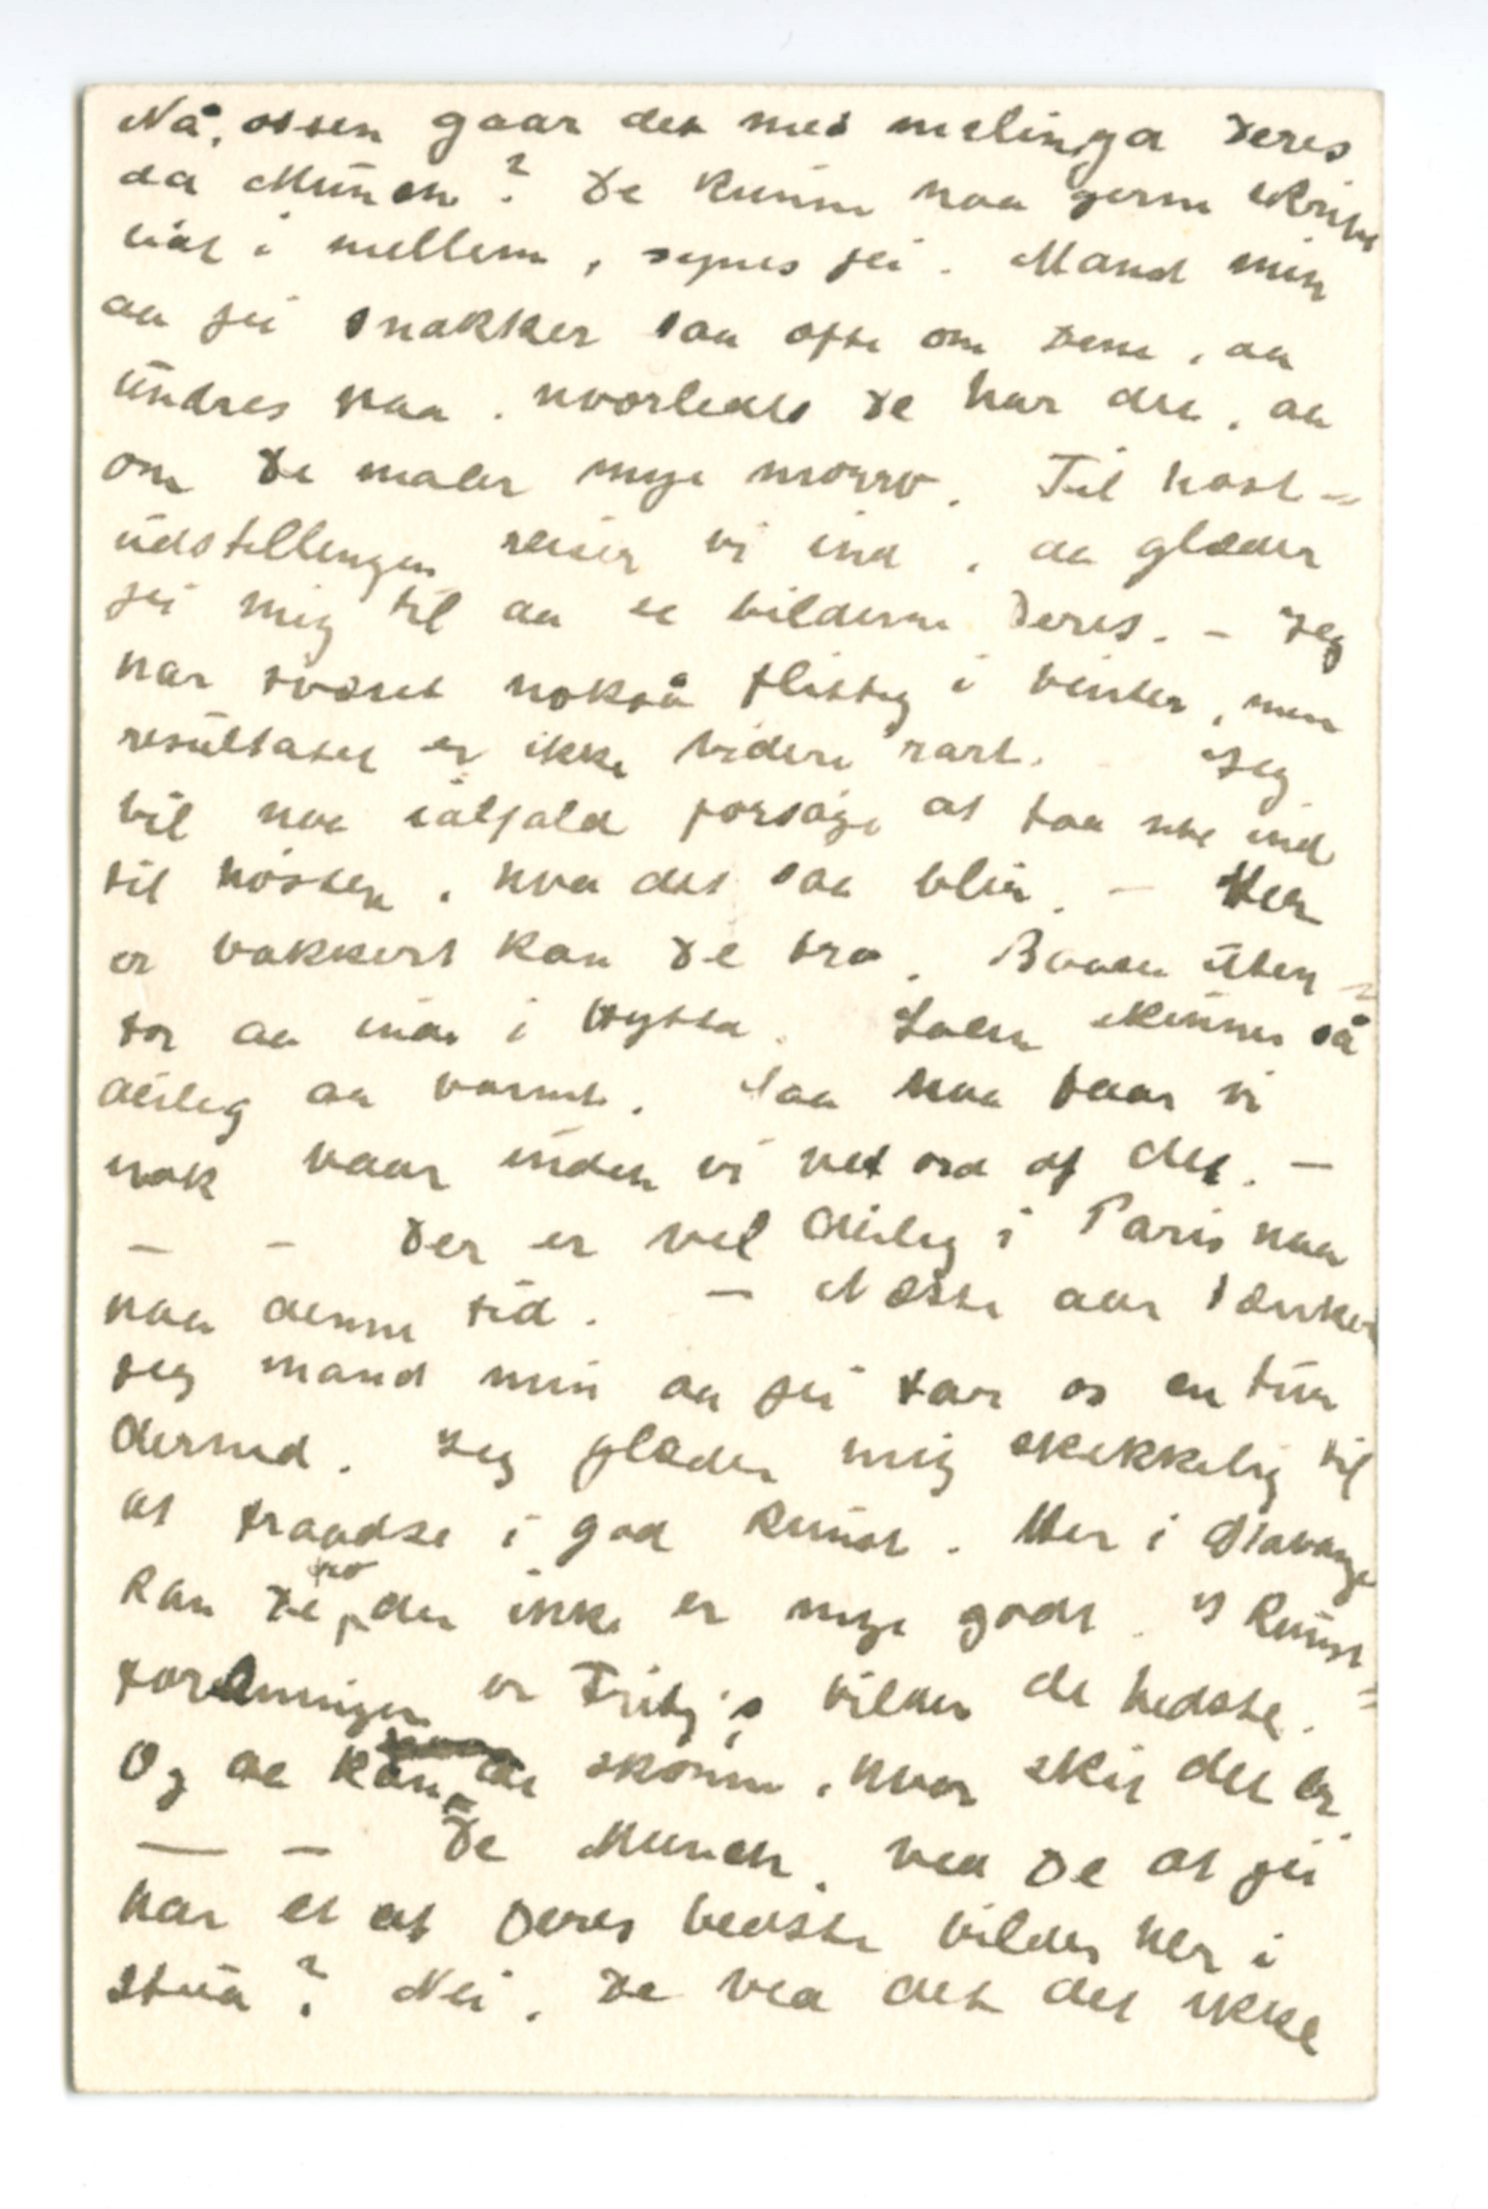 Nå, ossen gaar det med malinga Deres
da Munch? De kunne naa gerne skrive
iat i mellem, synes jei. Mand min
aa jei snakker saa ofte om Dem, aa
undres paa, hvorledes De har det, aa
om De maler mye morro. Til høst-
udstillingen reiser vi ind, aa glæder
jei mig til aa se bilderne Deres. – Jeg
har sværet nokså flittig i vinter, men
resultatet er ikke videre rart. Jeg
vil nu ialfald forsøge at faa noe ind
til høsten, hva det saa blir. – Her
er vakkert kan De tro. Baade uten-
for aa inde i hytta. Solen skinner så
deilig aa varmt. Saa naa faar vi
nok vaar inden vi vet ord af det. –
– – Der er vel deilig i Paris naa
paa denne tid. – Næste aar tænker
jeg mand min aa jei tar os en tur
derned. Jeg glæder mig skikkelig til
at fraadse i god kunst. Her i Stavanger
kan De tro, der ikke er mye godt. I Kunst-
foreningen er Fritz's bilder de bedste.
Og da kan De skønne, hvor skit det er.
— – De Munch, ved De at jei
har et af Deres bedste bilder her i
stua? Nei, De ved det det ikke